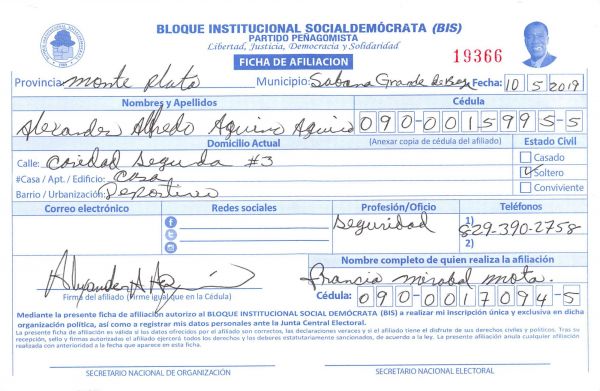 BLOQUE INSTITUCIONAL SOCIALDEMÓCRATA (BIS)
PARTIDO PEÑAGOMISTA
Libertad, Justicia, Democracia y Solidaridad
FICHA DE AFILIACION
19366
Provincia Monte Plata Municipio: Sabana Grande de Boya Fecha: 10 5 2019
Nombres y Apellidos Cédula
Alexander Alfredo Aquino Aquino 090-0015995-5
Domicilio Actual (Anexar copia de cédula del afiliado) Estado Civil
Calle: Segunda #3 Casado
#Casa / Apt. / Edificio: Casa Soltero
Barrio / Urbanización: Deportivo Conviviente
Correo electrónico Redes sociales Profesión/Oficio Teléfonos
Seguridad 1) 829-390-2758
2)
Nombre completo de quien realiza la afiliación
Alexander A Aq
Francia mirabal mota.
Firma del afiliado (Firme igual que en la Cédula) Cédula: 090-0017094-5
Mediante la presente ficha de afiliación autorizo al BLOQUE INSTITUCIONAL SOCIAL DEMÓCRATA (BIS) a realizar mi inscripción única y exclusiva en dicha
organización política, así como a registrar mis datos personales ante la Junta Central Electoral.
La presente ficha de afiliación es valida si los datos ofrecidos por el afiliado son correctos, las declaraciones veraces y si el afiliado tiene el disfrute de sus derechos civiles y políticos. Tras su
recepción, sello y firmas autorizadas el afiliado ejercerá todos los derechos y los deberes estatutariamente sancionados, de acuerdo a la ley. La presente afiliación anula cualquier afiliación
realizada con anterioridad a la fecha que aparece en esta ficha.
SECRETARIO NACIONAL DE ORGANIZACIÓN SECRETARIO NACIONAL ELECTORAL